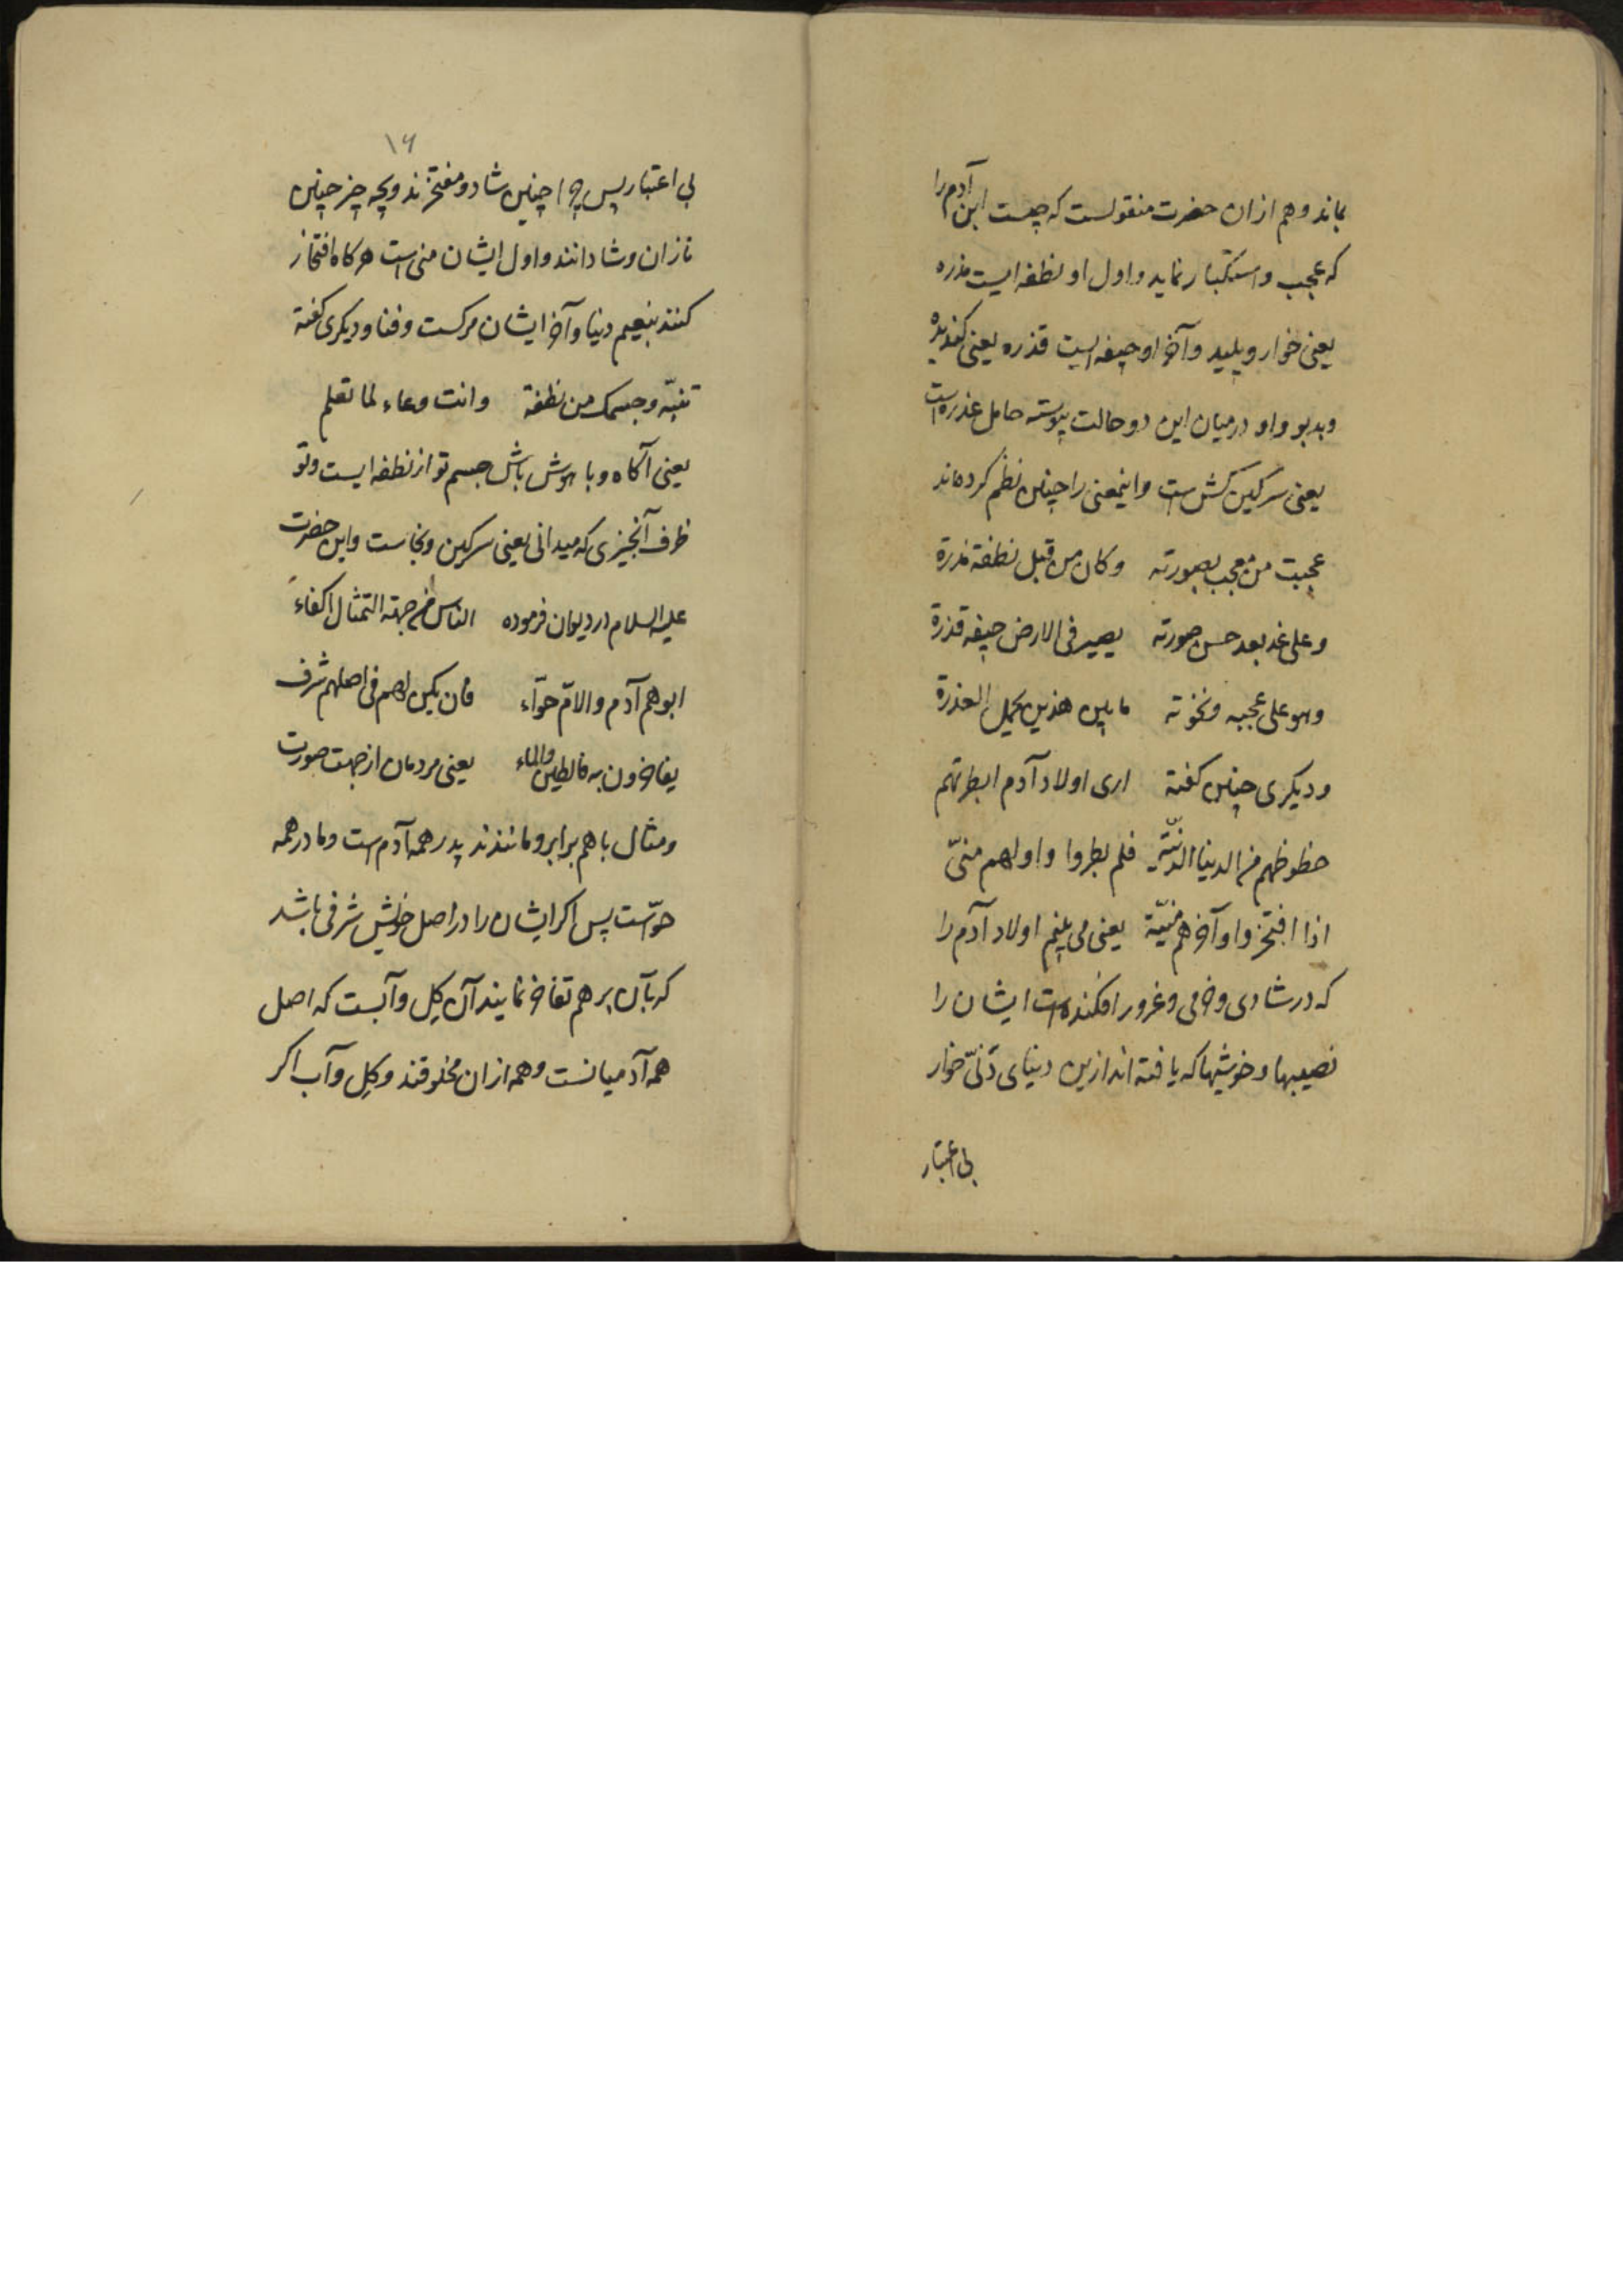 بماند و هم ازان حضرت منقولست که چیست ابن آدم را
که عجب و استکبار نماید و اول او نطفه ایست مذره
یعنی خوار و پلید و آخر او جیفه ایست قذره یعنی کندیده
و بدبو و او درمیان این دو حالت پیوسته حامل عذره است
یعنی سرکین کش است و اینمعنی را چنین نظم کرده‌اند
عجبت من معجب بصورته وکان من قبل نطفة مذرة
و علی غد بعد حسن صورته یصیر فی الارض جیفه قذرة
وهو علی عجبه ونخوته مابین هذین یحمل العذرة
و دیکری چنین کفته اری اولاد آدم ابطرتهم
حظوظهم من الدنیا الدنیّة فلم بطروا واولهم منیّ
اذا افتخروا وآخرهم منیّة یعنی می بینم اولاد آدم را
که در شادی و خرمی و غرور افکنده است ایشان را
نصیبها و خوشیها که یافته اند ازین دنیای دَنیّ خوار
بی اعتبار
۱۶
بی اعتبار پس چرا چنین شاد و مفتخرند و بچه چیز چنین
نازان و شادانند و اول ایشان منی است هرکاه افتخار
کنند بنعیم دنیا و آخر ایشان مرکست و فنا و دیکری کفته
تنبّه وجسمک من نطفة وانت وعاء لما تعلم
یعنی آکاه و با هوش باش جسم تو از نطفه ایست و تو
ظرف آنچیزی که میدانی یعنی سرکین و نجاست و این حضرت
علیه السلام در دیوان فرموده الناس من جهة التمثال اکفاء
ابوهم آدم والامّ حوّاء فان یکن لهم فی اصلهم شرف
یفاخرون به فالطین والماء یعنی مردمان از جهت صورت
ومثال باهم برابر و مانندند پدر همه آدم است و مادر همه
حوّاست پس اکر ایشان را در اصل خویش شرفی باشد
که بآن بر هم تفاخر نمایند آن کِل و آبست که اصل
همه آدمیانست و همه ازان مخلوقند و کِل و آب اکر